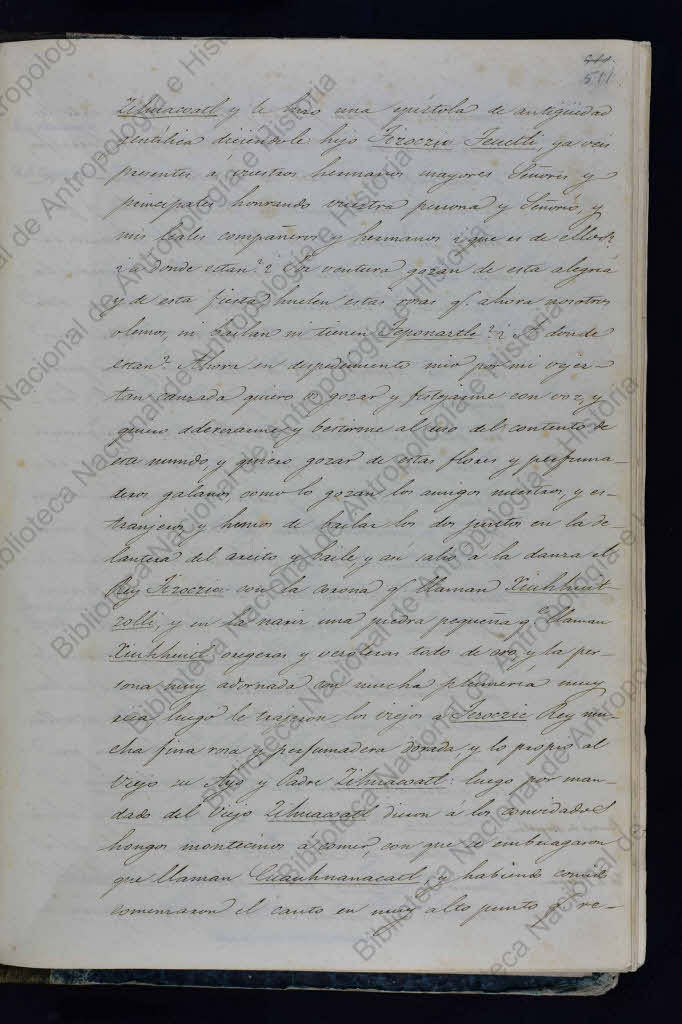 511
Zihuacoatl y le hizo una epistola de antigüedad
gentilica diciendole: hijo Tizoczic Teuctli, ya veis
presentes á vuestros hermanos mayores Señores y
principales honrando vuestra persona y Señorio, y
mis leales compañeros y hermanos ¿que es de ellos?
¿a donde estan? ¿Por ventura gozan de esta alegria
y de esta fiesta, huelen estas rosas q. ahora nosotros
olemos, ni bailan ni tienen Teponaztle? ¿A donde
estan? Ahora en despedimento mio por mi vejez
tan cansada quiero gozar y festejarme con voz, y
quiero aderezarme y vestirme al uso del contento de
este mundo, y quiero gozar de estas flores y perfuma-
deros galanos como lo gozan los amigos nuestros, y es-
tranjeros y hemos de bailar los dos juntos en la de-
lantera del areito y baile, y asi salió á la danza el
Rey Tizoczic con la corona q. llaman Xiuhhuit-
zolli, y en la nariz una piedra pequeña q. llaman
Xiuhhuitl oregeras y vezoleras todo de oro, y la per-
sona muy adornada con mucha plumeria muy
rica, luego le trageron los viejos a Tizoczic Rey mu-
cha fina rosa y perfumadera dorada, y lo propio al
viejo su Ayo y Padre Zihuacoatl: luego por man-
dado del viejo Zihuacoatl dieron á los convidados
hongos montecinos á comer, con que se embriagaron
que llaman Cuauhnanacatl, y habiendo comido
comenzaron el canto en muy alto punto q. re-
Biblioteca Nacional de Antropología e Historia
Biblioteca Nacional de Antropología e Historia
Biblioteca Nacional de Antropología e Historia